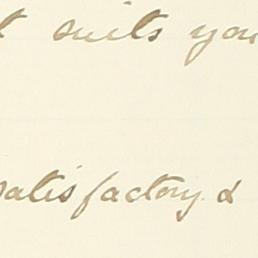 t suits you
satisfactory &